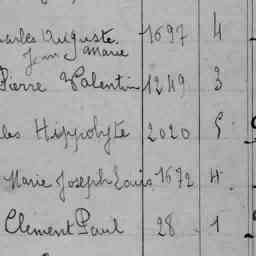 Charles Auguste 1697 4
Jean Marie
Pierre Valentin 1249 3
les Hippolyte 2020 5
Marie Joseph Louis 1672 4.
Clement Paul 28 1